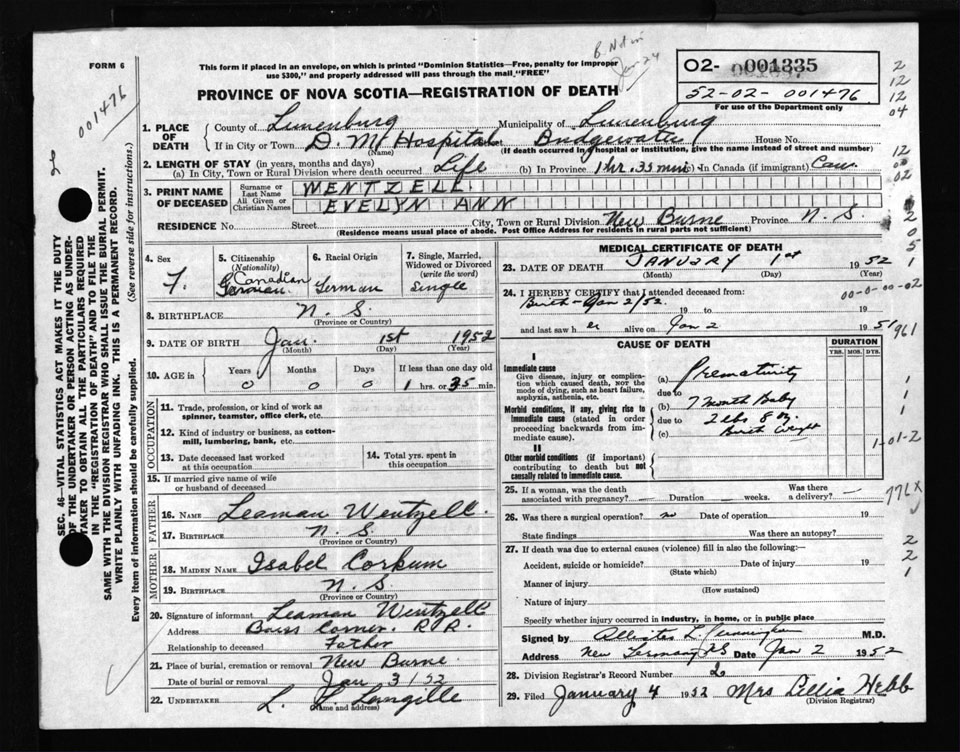 FORM 6
This form if placed in an envelope, on which is printed "Dominion Statistics—Free, penalty for improper
use $300," and properly addressed will pass through the mail "FREE"
Jan 24
O2- 001335
52-02-001476
For use of the Department only
001476
PROVINCE OF NOVA SCOTIA—REGISTRATION OF DEATH
1. PLACE OF DEATH County of Lunenburg Municipality of Lunenburg
If in City or Town D. M. Hospital Bridgewater House No.
(Name) (If death occurred in hospital or institution, give the name instead of street and number)
2. LENGTH OF STAY (in years, months and days)
(a) In City, Town or Rural Division where death occurred Life (b) In Province 1 hr. 35 min (c) In Canada (if immigrant) Can.
3. PRINT NAME OF DECEASED Surname or Last Name WENTZELL
All Given or Christian Names EVELYN ANN
RESIDENCE No. Street City, Town or Rural Division New Burne Province N. S.
(Residence means usual place of abode. Post Office Address for residents in rural parts not sufficient)
4. Sex F.
5. Citizenship (Nationality) Canadian German
6. Racial Origin German
7. Single, Married, Widowed or Divorced (write the word) Single
8. BIRTHPLACE N. S.
(Province or Country)
9. DATE OF BIRTH Jan. 1st 1952
(Month) (Day) (Year)
10. AGE in Years Months Days If less than one day old
0 0 0 1 hrs. or 35 min.
OCCUPATION
11. Trade, profession, or kind of work as spinner, teamster, office clerk, etc.
12. Kind of industry or business, as cotton-mill, lumbering, bank, etc.
13. Date deceased last worked at this occupation
14. Total yrs. spent in this occupation
15. If married give name of wife or husband of deceased
FATHER
16. NAME Leaman Wentzell
17. BIRTHPLACE N. S.
(Province or Country)
MOTHER
18. MAIDEN NAME Isabel Corkum
19. BIRTHPLACE N. S.
(Province or Country)
20. Signature of informant Leaman Wentzell
Address Barss Corner. R R.
Relationship to deceased Father
21. Place of burial, cremation or removal New Burne
Date of burial or removal Jan 3/52
22. UNDERTAKER L. L. Langille
(Name and address)
MEDICAL CERTIFICATE OF DEATH
23. DATE OF DEATH JANUARY 1st 1952
(Month) (Day) (Year)
24. I HEREBY CERTIFY that I attended deceased from:
Birth - Jan 2/52. 19 to 19
00-0-00-02
and last saw h er alive on Jan 2 1951
961
CAUSE OF DEATH DURATION
YRS. MOS. DYS.
I
Immediate cause
Give disease, injury or complication which caused death, not the mode of dying, such as heart failure, asphyxia, asthenia, etc.
(a) Prematurity
due to
Morbid conditions, if any, giving rise to immediate cause (stated in order proceeding backwards from immediate cause).
(b) 7 month Baby
due to 2 lbs 8 oz
(c) Birth Weight
II
Other morbid conditions (if important) contributing to death but not causally related to immediate cause.
1-01-2
25. If a woman, was the death associated with pregnancy? — Duration — weeks. Was there a delivery? —
776X
26. Was there a surgical operation? no Date of operation 19
State findings Was there an autopsy?
27. If death was due to external causes (violence) fill in also the following:—
Accident, suicide or homicide? Date of injury 19
(State which)
Manner of injury
(How sustained)
Nature of injury
Specify whether injury occurred in industry, in home, or in public place
Signed by M.D.
Address New Germany NS Date Jan 2 1952
28. Division Registrar's Record Number 2
29. Filed January 4 1952 Mrs Lillia Webb
(Division Registrar)
SEC. 46—VITAL STATISTICS ACT MAKES IT THE DUTY
OF THE UNDERTAKER OR PERSON ACTING AS UNDERTAKER TO OBTAIN ALL THE PARTICULARS REQUIRED
IN THE "REGISTRATION OF DEATH" AND TO FILE THE
SAME WITH THE DIVISION REGISTRAR WHO SHALL ISSUE THE BURIAL PERMIT.
WRITE PLAINLY WITH UNFADING INK. THIS IS A PERMANENT RECORD.
Every item of information should be carefully supplied. (See reverse side for instructions.)
2
12
12
04
12
00
02
2
0
5
1
1
1
1
2
2
1